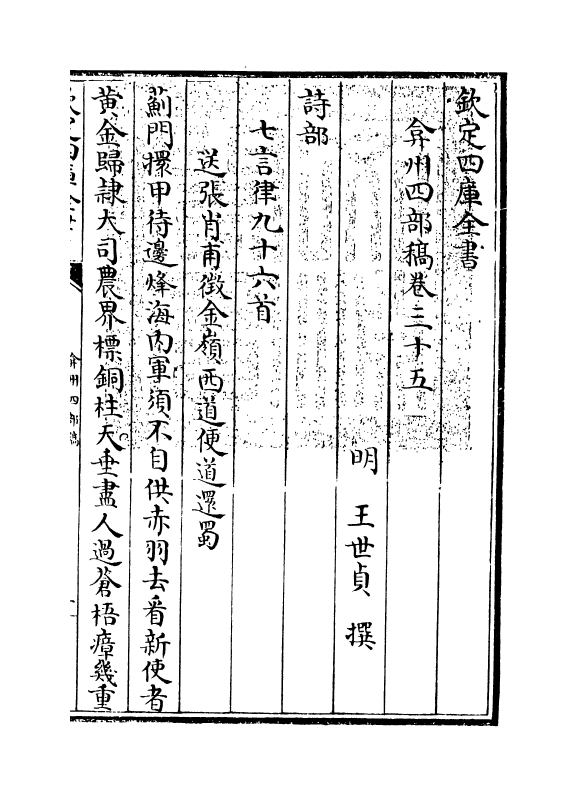 欽定四庫全書
弇州四部稿卷三十五
明 王世貞 撰
詩部
七言律九十六首
送張肖甫徴金嶺西道便道還蜀
薊門擐甲待邊烽海內軍須不自供赤羽去看新使者
黄金歸隷大司農界標銅柱天垂盡人過蒼梧瘴幾重
弇州四部稿